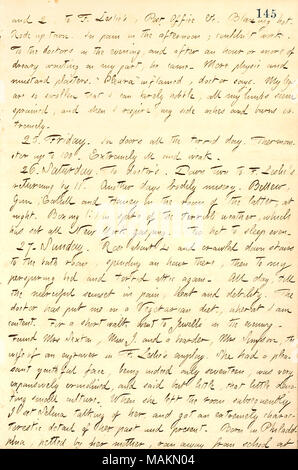 145
and 2 to F. Leslie's, Post Office &c. Blazing hot.
Rode up town. In pain in the afternoon; couldn't work.
To the doctors in the evening, and after an hour or more of
dreary waiting on my part, he came. More physic and
mustard plasters. Pleura inflamed, doctor says. My
are so swollen that I can barely walk, all my limbs seem
sprained, and when I respire my side aches and burns ex-
tremely.
25. Friday. In doors all the torrid day. Thermom-
eter up to 100. Extremely ill and weak.
26. Saturday. To doctor's. Down town to F. Leslie's
returning by 11. Another days bodily misery. Bellew,
Gun, Cahill and Haney in the room of the latter, at
night. Boxing in spite of the terrible weather, which
has set all New York gasping. Too hot to sleep even.
27. Sunday. Rose about and crawled down stairs
to the bath room, spending an hour there, then to my
perspiring bed and torrid attic again. All day, till
the merciful sunset in pain, heat and debility. The
doctor has put me on a vegetarian diet, whereat I am
content. For a short walk went to Jewells in the evening.
Found Mrs Sexton, Mrs J. and a boarder, Mrs Simpson, the
wife of an engraver in F. Leslie's employ. She had a pleas-
ant youthful face, being indeed only seventeen, was very
expansively crinolined, and said but little, that little dis-
laying small culture. When she left the room subsequently
J. at Selina talking of her and got an extremely charac-
teristic detail of her past and present. Born in Philadel-
phia, petted by her mother, ran away from school at
alamy
Image ID: MAKN04
www.alamy.com